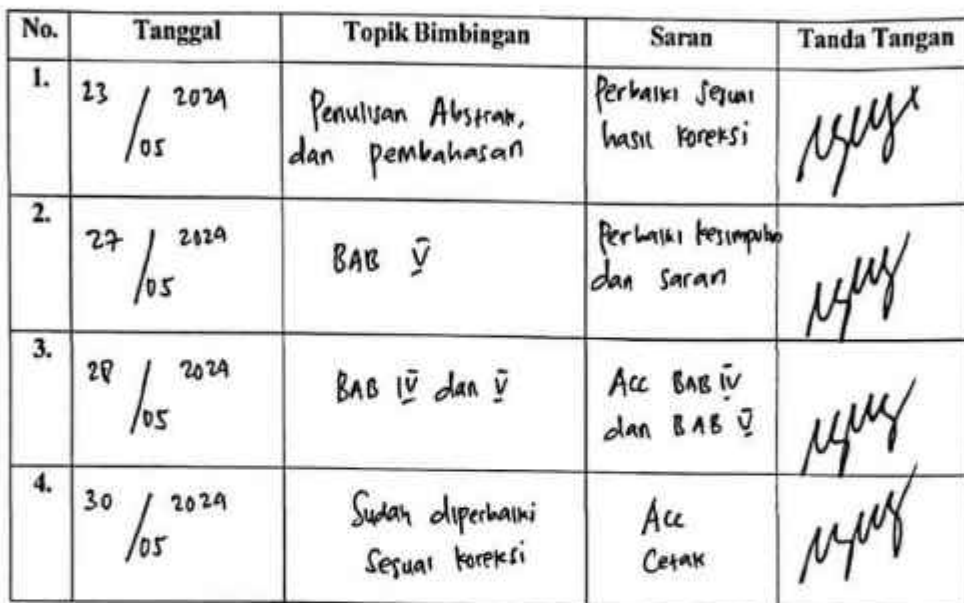 No. Tanggal Topik Bimbingan Saran Tanda Tangan
1. 23 / 05 2024 Penulisan Abstrak, Perbaiki sesuai
dan pembahasan hasil koreksi
2. 27 / 05 2024 BAB V Perbaiki
dan saran
3. 28 / 05 2024 BAB IV dan V Acc BAB IV
dan BAB V
4. 30 / 05 2024 Sudah diperbaiki Acc
sesuai koreksi Cetak